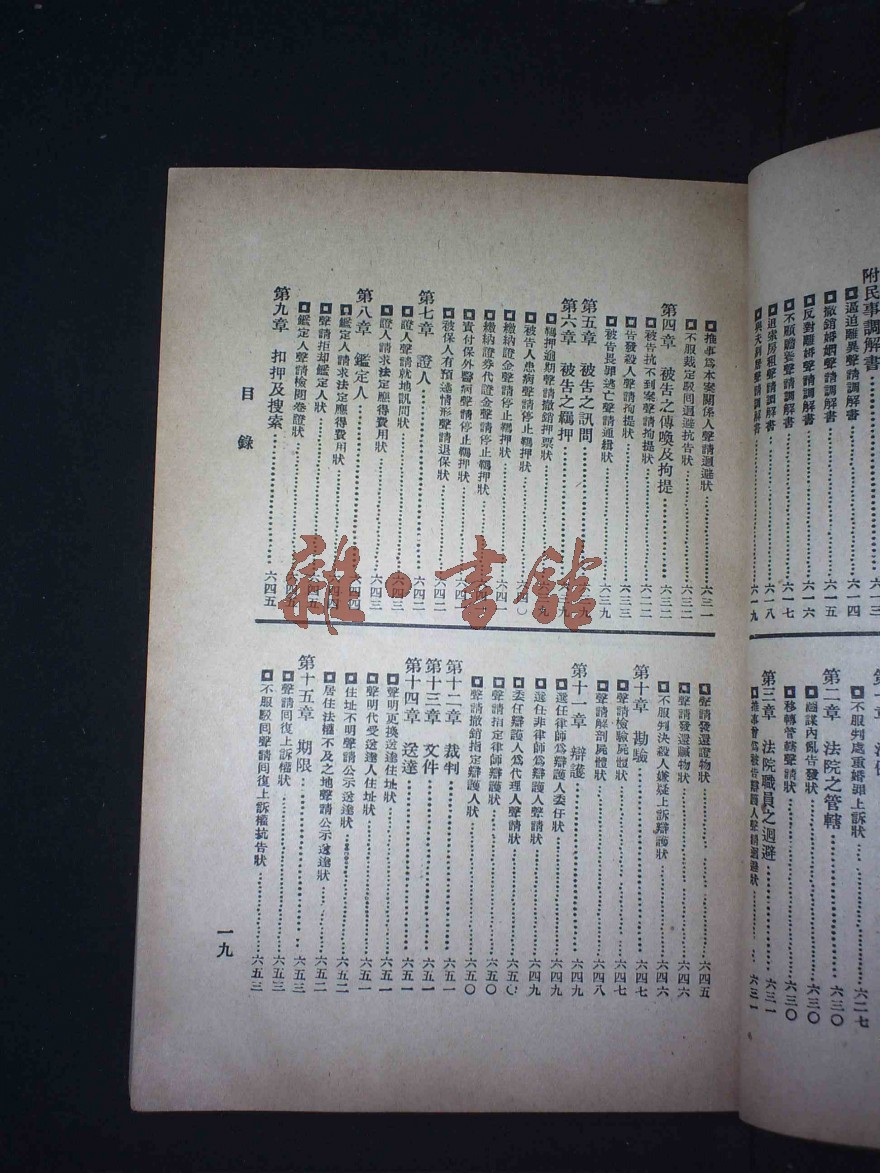 附民事調解書……六一三
逼迫離異聲請調解書……六一四
撤銷婚姻聲請調解書……六一五
反對離婚聲請調解書……六一六
不願贍養聲請調解書……六一七
追索房租聲請調解書……六一八
聲請調解書……六一九
不服判處重婚罪上訴狀……六二七
第二章 法院之管轄……六三〇
通謀內亂告發狀……六三〇
移轉管轄聲請狀……六三〇
第三章 法院職員之迴避……六三一
推事曾爲被告辯護人聲請迴避狀……六三一
推事爲本案關係人聲請迴避狀……六三一
不服裁定駁回迴避抗告狀……六三二
第四章 被告之傳喚及拘提……六三二
被告抗不到案聲請拘提狀……六三二
告發殺人聲請拘提狀……六三三
被告畏罪逃亡聲請通緝狀……六三九
第五章 被告之訊問……六三九
第六章 被告之羈押……六三九
羈押逾期聲請撤銷押票狀……六三九
被告人患病聲請停止羈押狀……六四〇
繳納證金聲請停止羈押狀……六四一
繳納證券代證金聲請停止羈押狀……六四一
責付保外醫病聲請停止羈押狀……六四二
被保人有預逃情形聲請退保狀……六四二
第七章 證人……六四二
證人聲請就地訊問狀……六四三
證人請求法定應得費用狀……六四三
第八章 鑑定人……六四四
鑑定人請求法定應得費用狀……六四四
聲請拒却鑑定人狀……六四五
鑑定人聲請檢閱卷證狀……六四五
第九章 扣押及搜索……六四五
聲請發還證物狀……六四五
聲請發還贓物狀……六四六
不服判決殺人嫌疑上訴辯護狀……六四六
第十章 勘驗……六四七
聲請檢驗屍體狀……六四七
聲請解剖屍體狀……六四八
第十一章 辯護……六四九
選任律師爲辯護人委任狀……六四九
選任非律師爲辯護人聲請狀……六四九
委任辯護人爲代理人聲請狀……六五〇
聲請指定律師辯護人狀……六五〇
聲請撤銷指定辯護人狀……六五〇
第十二章 裁判……六五一
第十三章 文件……六五一
第十四章 送達……六五一
聲明更換送達住址狀……六五一
聲明代受送達人住址狀……六五一
住址不明聲請公示送達狀……六五二
居住法權不及之地聲請公示送達狀……六五二
第十五章 期限……六五三
聲請回復上訴權狀……六五三
不服駁回聲請回復上訴權抗告狀……六五三
目錄
一九
雜·書館